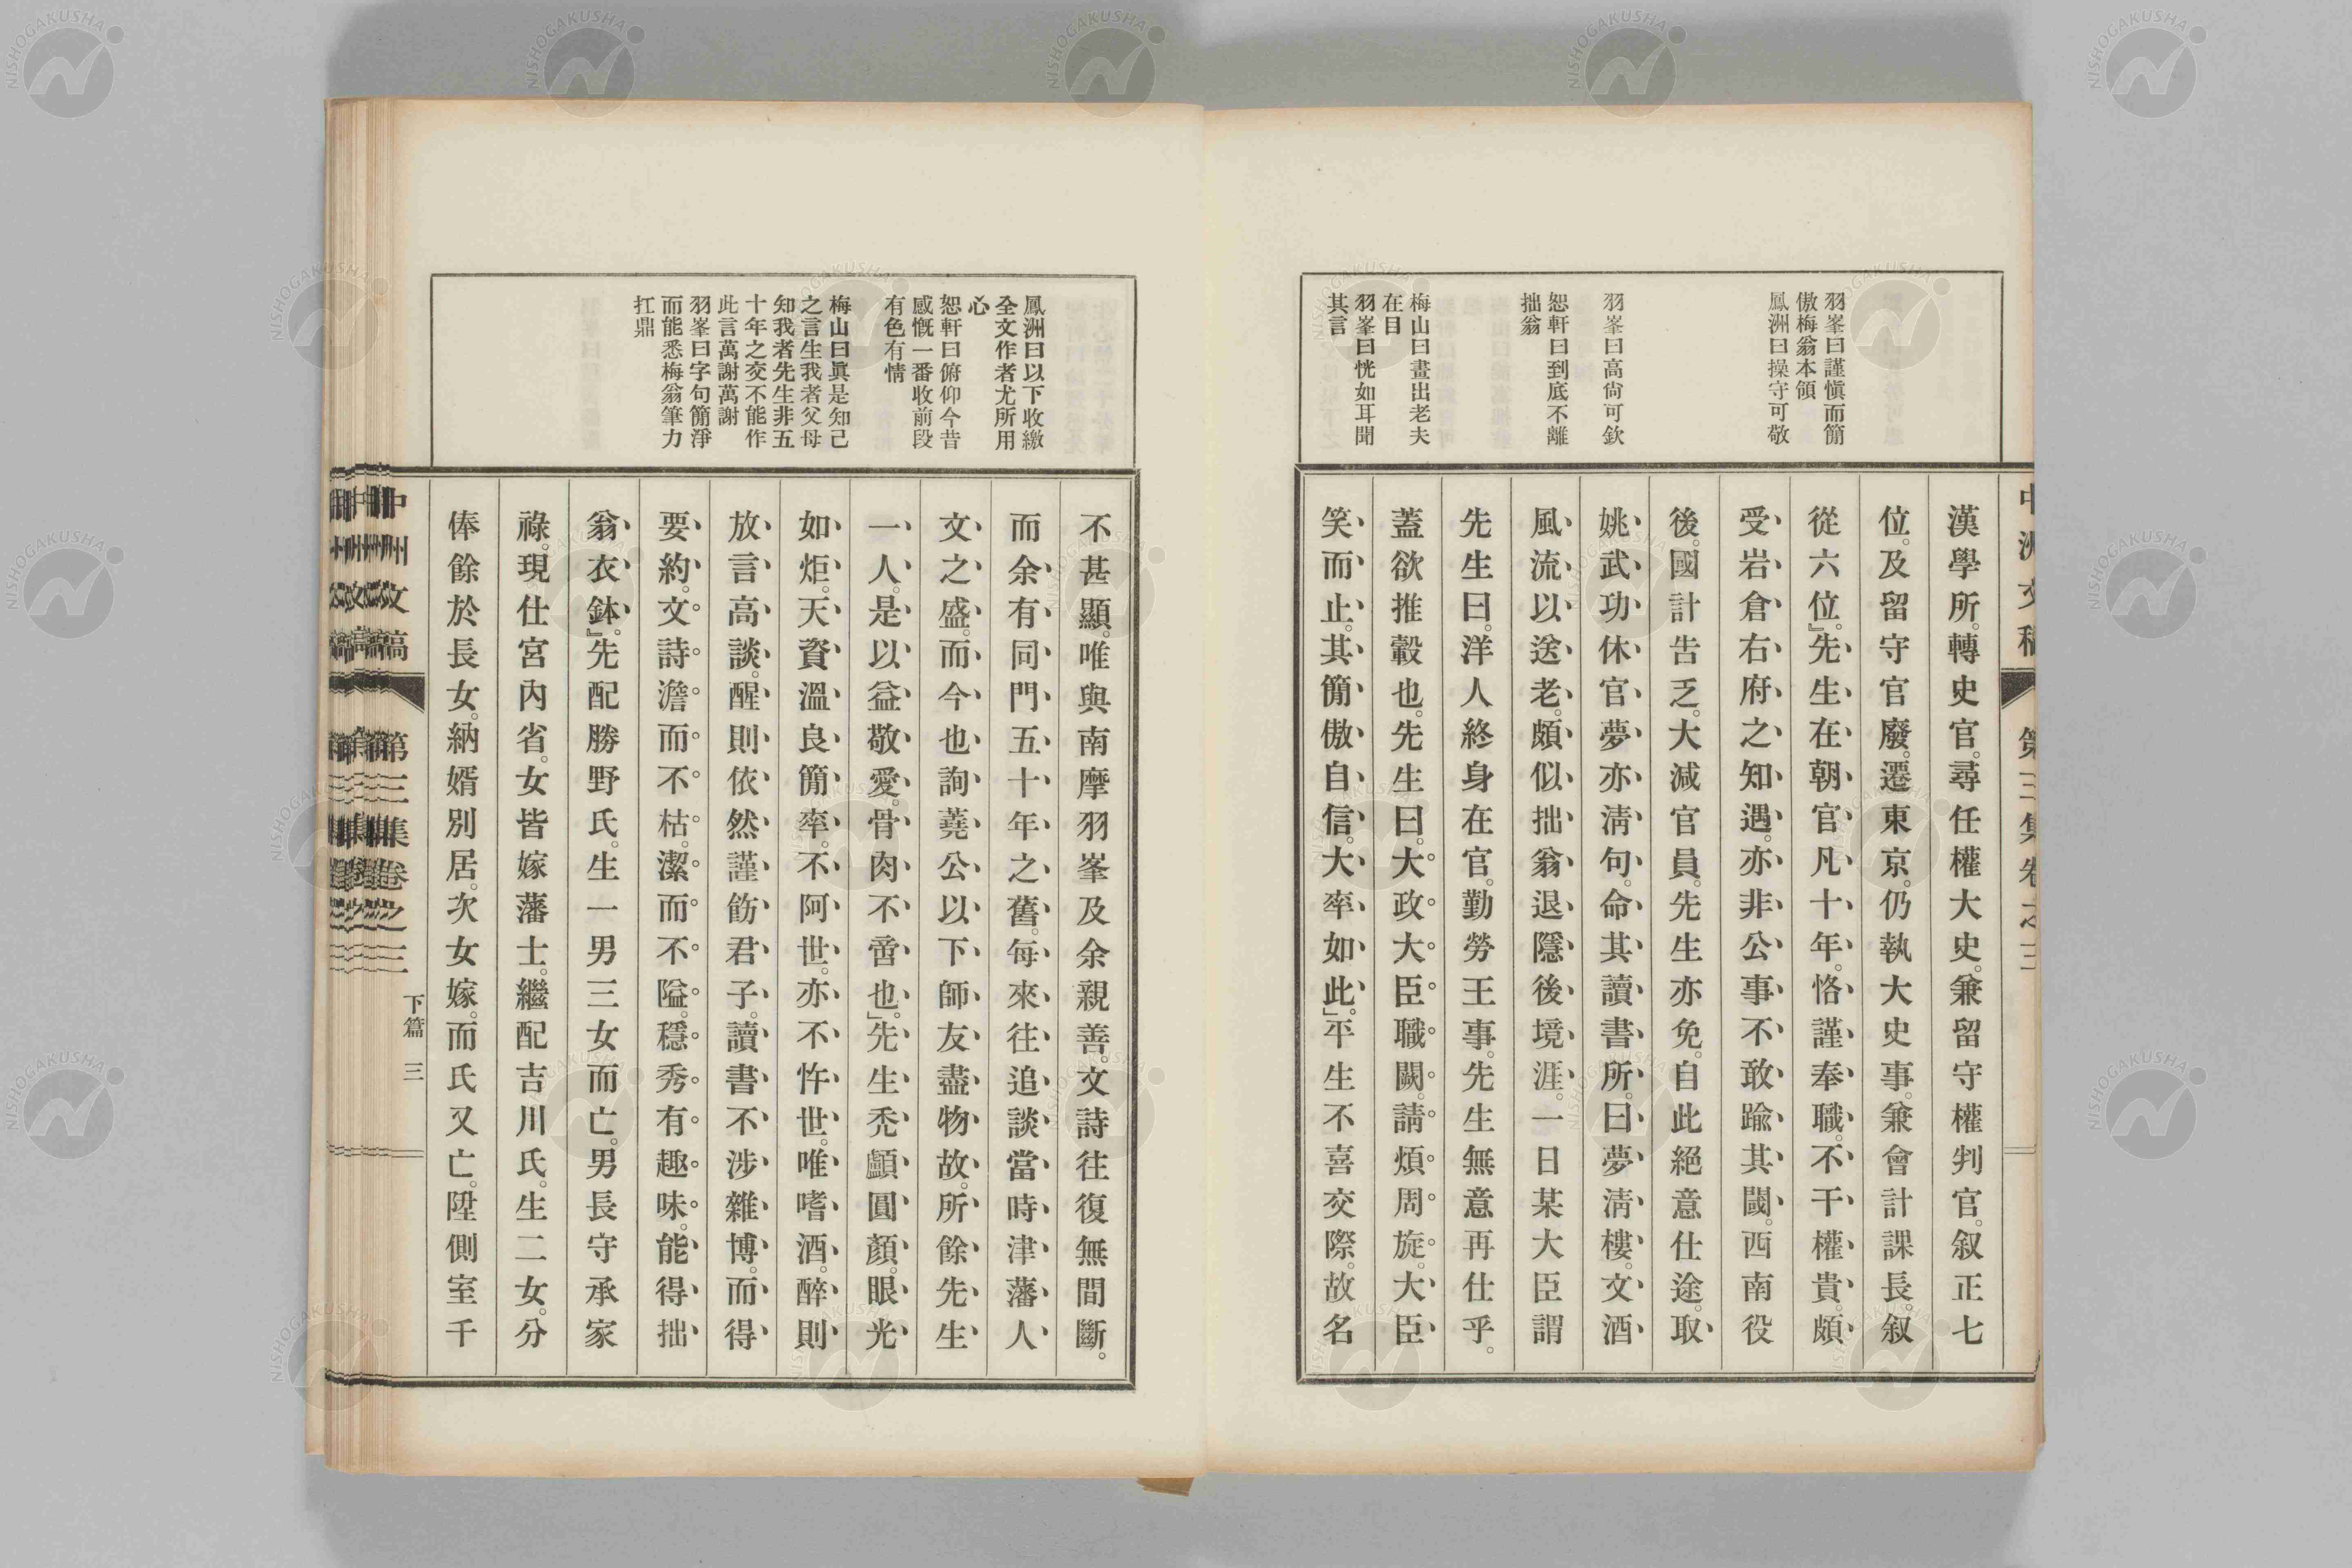 羽峯曰謹愼而簡
傲梅翁本領
鳳洲曰操守可敬
羽峯曰高尙可欽
恕軒曰到底不離
拙翁
梅山曰畫出老夫
在目
羽峯曰恍如耳聞
其言
漢學所。轉史官。尋任權大史。兼留守權判官。叙正七
位。及留守官廢。遷東京。仍執大史事。兼會計課長。叙
從六位。』先生在朝官凡十年。恪謹奉職。不干權貴。頗
受岩倉右府之知遇。亦非公事不敢踰其閾。西南役
後。國計吿乏。大減官員。先生亦免。自此絕意仕途。取
姚武功休官夢亦淸句。命其讀書所曰夢淸樓。文酒
風流以送老。頗似拙翁退隱後境涯。一日某大臣謂
先生曰。洋人終身在官。勤勞王事。先生無意再仕乎。
蓋欲推轂也。先生曰。大政大臣職闕。請煩周旋。大臣
笑而止。其簡傲自信。大率如此。』平生不喜交際。故名
鳳洲曰以下收繳
全文作者尤所用
心
恕軒曰俯仰今昔
感慨一番收前段
有色有情
梅山曰眞是知己
之言生我者父母
知我者先生非五
十年之交不能作
此言萬謝萬謝
羽峯曰字句簡淨
而能悉梅翁筆力
扛鼎
不甚顯。唯與南摩羽峯及余親善。文詩往復無間斷。
而余有同門五十年之舊。每來往追談當時津藩人
文之盛。而今也詢蕘公以下師友盡物故。所餘先生
一人。是以益敬愛。骨肉不啻也。』先生禿顱圓顏。眼光
如炬。天資溫良簡率。不阿世。亦不忤世。唯嗜酒。醉則
放言高談。醒則依然謹飭君子。讀書不涉雜博。而得
要約。文詩澹而不枯。潔而不隘。穩秀有趣味。能得拙
翁衣鉢。』先配勝野氏。生一男三女而亡。男長守承家
祿。現仕宮內省。女皆嫁藩士。繼配吉川氏。生二女。分
俸餘於長女。納婿別居。次女嫁。而氏又亡。陞側室千
中洲文稿
第三集卷之三
下篇 三